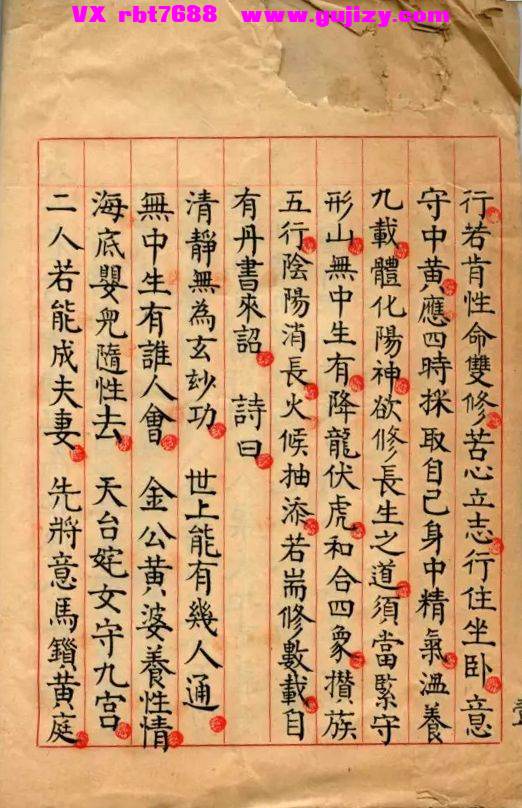 VX rbt7688 www.gujizy.com
行若肯性命雙修苦心立志行住坐卧意
守中黃應四時採取自己身中精氣溫養
九載體化陽神欲修長生之道須當緊守
形山無中生有降龍伏虎和合四象攅族
五行陰陽消長火候抽添若耑修數載自
有丹書來詔 詩曰
清靜無為玄玅功 世上能有幾人通
無中生有誰人會 金公黃婆養性情
海底嬰兒隨性去 天台姹女守九宮
二人若能成夫妻 先將意馬鎖黃庭